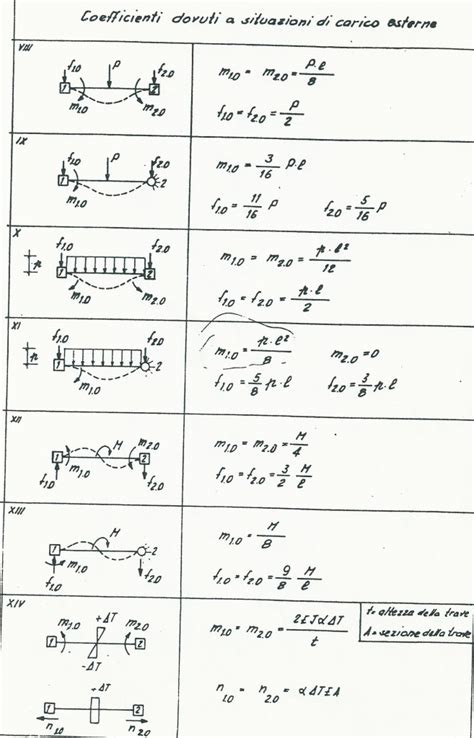 Coefficienti dovuti a situazioni di carico esterne
VIII
f1.0 P f2.0
1 2
m1.0 m2.0
m1.0 = m2.0 = P.l/8
f1.0 = f2.0 = P/2
IX
f1.0 P f2.0
1 2
m1.0
m1.0 = 3/16 P.l
f1.0 = 11/16 P f2.0 = 5/16 P
X
f1.0 f2.0
p 1 2
m1.0 m2.0
m1.0 = m2.0 = p.l²/12
f1.0 = f2.0 = p.l/2
XI
f1.0 f2.0
p 1 2
m1.0
m1.0 = p.l²/8 m2.0 = 0
f1.0 = 5/8 p.l f2.0 = 3/8 p.l
XII
M m2.0
1 2
f1.0 m1.0 f2.0
m1.0 = m2.0 = M/4
f1.0 = f2.0 = 3/2 M/l
XIII
M
1 2
f1.0 m1.0 f2.0
m1.0 = M/8
f1.0 = f2.0 = 9/8 M/l
XIV
m1.0 +ΔT m2.0
1 2
-ΔT
m1.0 = m2.0 = 2EJαΔT/t
t= altezza della trave
A= sezione della trave
+ΔT
1 2
n1.0 n2.0
n1.0 = n2.0 = αΔTEA